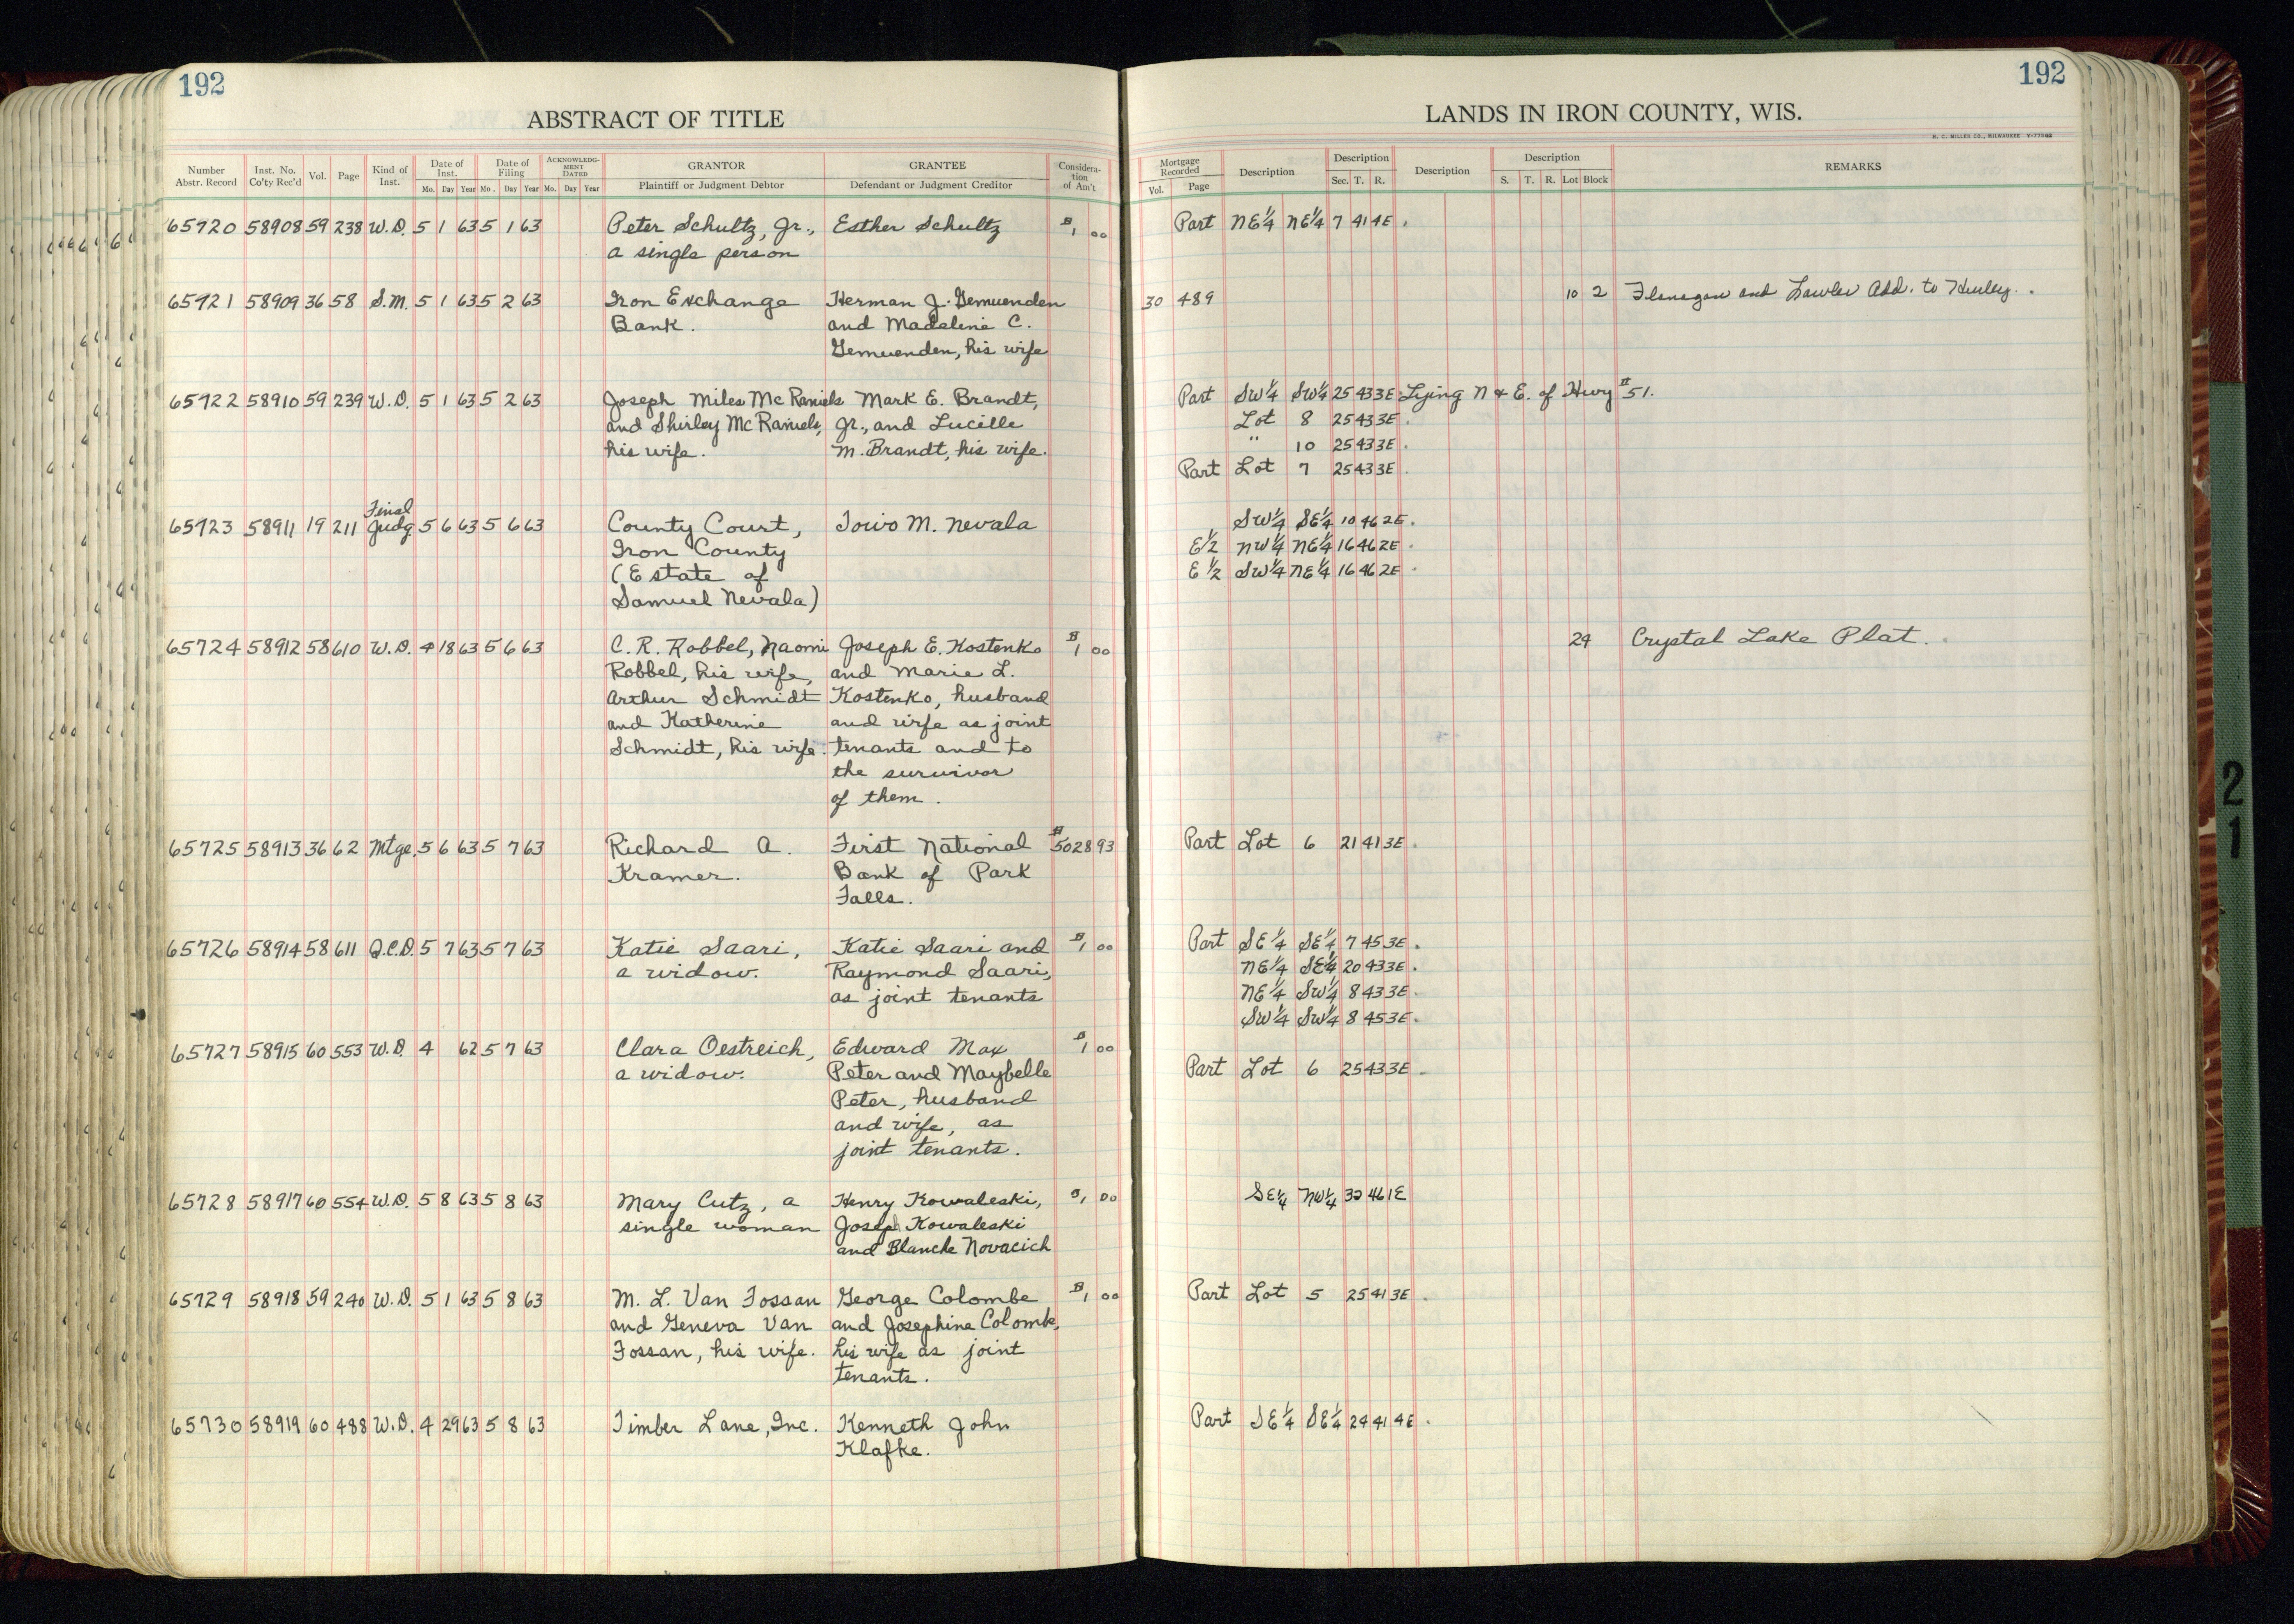 192
ABSTRACT OF TITLE
Number Abstr. Record Inst. No. Co'ty Rec'd Vol. Page Kind of Inst. Date of Inst. Mo. Day Year Date of Filing Mo. Day Year ACKNOWLEDGMENT DATED Mo. Day Year GRANTOR Plaintiff or Judgment Debtor GRANTEE Defendant or Judgment Creditor Consideration of Am't
65720 58908 59 238 W.D. 5 1 63 5 1 63 Peter Schultz, Jr., Esther Schultz $1 00
a single person
65721 58909 36 58 S.M. 5 1 63 5 2 63 Iron Exchange Herman J. Gemuenden
Bank. and Madeline C.
Gemuenden, his wife
65722 58910 59 239 W.D. 5 1 63 5 2 63 Joseph Miles McRaniels Mark E. Brandt,
and Shirley McRaniels, Jr., and Lucille
his wife. M. Brandt, his wife.
65723 58911 19 211 Final Judg 5 6 63 5 6 63 County Court, Toivo M. Nevala
Iron County
(Estate of
Samuel Nevala)
65724 58912 58 610 W.D. 4 18 63 5 6 63 C. R. Robbel, Naomi Joseph E. Kostenko $1 00
Robbel, his wife, and Marie L.
Arthur Schmidt Kostenko, husband
and Katherine and wife as joint
Schmidt, his wife. tenants and to
the survivor
of them.
65725 58913 36 62 Mtge. 5 6 63 5 7 63 Richard A. First National $5028 93
Kramer. Bank of Park
Falls.
65726 58914 58 611 Q.C.D. 5 7 63 5 7 63 Katie Saari, Katie Saari and $1 00
a widow. Raymond Saari,
as joint tenants
65727 58915 60 553 W.D. 4 62 5 7 63 Clara Oestreich, Edward Max $1 00
a widow. Peter and Maybelle
Peter, husband
and wife, as
joint tenants.
65728 58917 60 554 W.D. 5 8 63 5 8 63 Mary Cutz, a Henry Kowaleski, $1 00
single woman Joseph Kowaleski
and Blanche Novacich
65729 58918 59 240 W.D. 5 1 63 5 8 63 M. L. Van Fossan George Colombe $1 00
and Geneva Van and Josephine Colombe,
Fossan, his wife. his wife as joint
tenants.
65730 58919 60 488 W.D. 4 29 63 5 8 63 Timber Lane, Inc. Kenneth John
Klafke.
192
LANDS IN IRON COUNTY, WIS.
H. C. MILLER CO., MILWAUKEE
Mortgage Recorded Vol. Page Description Description Sec. T. R. Description Description S. T. R. Lot Block REMARKS
Part NE¼ NE¼ 7 41 4E.
30 489 10 2 Flanagan and Lawler Add. to Hurley.
Part SW¼ SW¼ 25 43 3E Lying N & E. of Hwy #51.
Lot 8 25 43 3E.
" 10 25 43 3E.
Part Lot 7 25 43 3E.
SW¼ SE¼ 10 46 2E.
E½ NW¼ NE¼ 16 46 2E.
E½ SW¼ NE¼ 16 46 2E.
24 Crystal Lake Plat.
Part Lot 6 21 41 3E.
Part SE¼ SE¼ 7 45 3E.
NE¼ SE¼ 20 43 3E.
NE¼ SW¼ 8 43 3E.
SW¼ SW¼ 8 45 3E.
Part Lot 6 25 43 3E.
SE¼ NW¼ 32 46 1E
Part Lot 5 25 41 3E.
Part SE¼ SE¼ 24 41 4E.
21